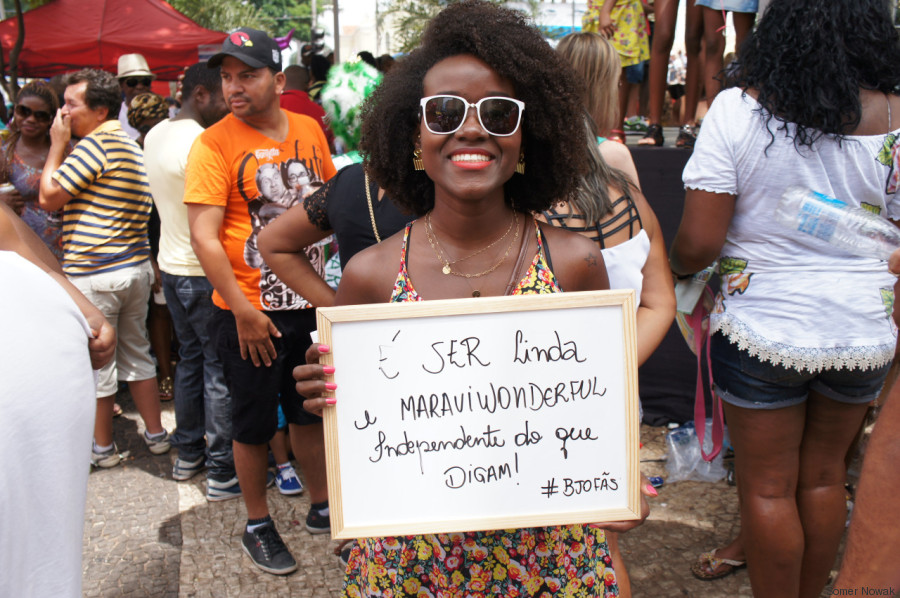 É SER linda
e MARAVIWONDERFUL
Independente do que
DIGAM!
#BJOFÃS
Somer Nowak